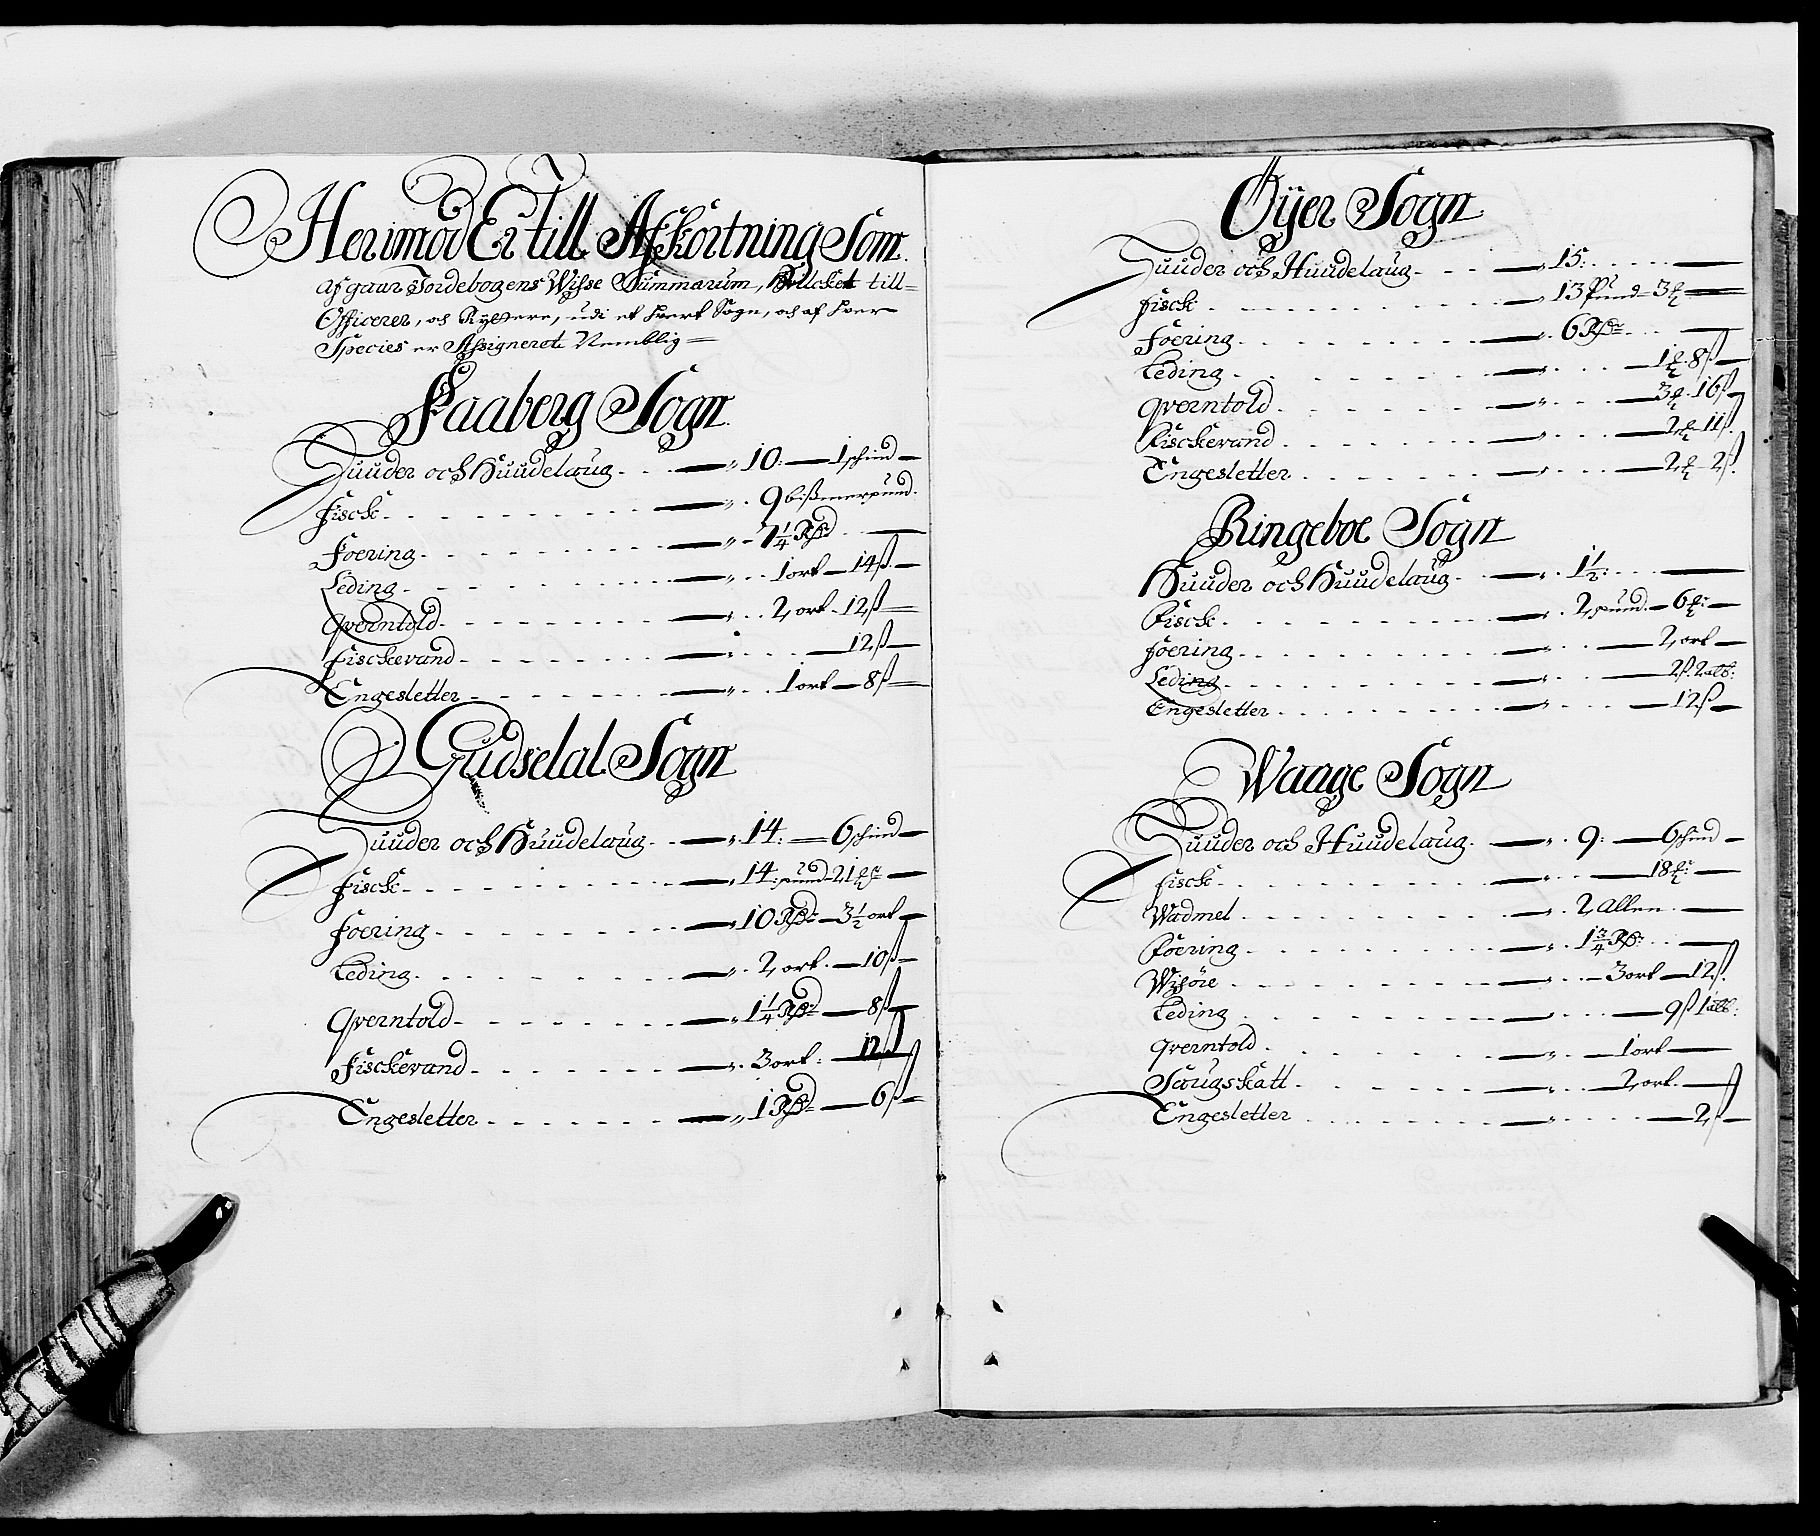 Herimod Er till Afkortning Som
afgaar Jordebogens Wisse Summarum, Hvilcket till=
Officerer, och Ryttere, udi et hvert Sogn, och af hver
Species er Assigneret Nemblig=
Faaberg Sogn
Huuder och Huudelaug - 10: - 1 schind
Fisck - 9 bismerpund.
Foering - 7 1/4 Rdr
Leding - 1 ort - 14 ß
Qverntold - 2 ort - 12 ß
Fisckevand - 12 ß
Engesletter - 1 ort - 8 ß
Gudselal Sogn
Huuder och Huudelaug - 14: - 6 schind
Fisck - 14: pund - 21 ℔
Foering - 10 Rdr - 3 1/2 ort
Leding - 2 ort - 10 ß
Qverntold - 1 1/4 Rdr - 8 ß
Fisckevand - 3 ort: - 12 ß
Engesletter - 1 Rdr - 6 ß
Öyer Sogn
Huuder och Huudelaug - 15:
Fisck - 13 Pund - 3 ℔
Foering - 6 Rdr
Leding - 1 ℔ 8 ß
Qverntold - 3 ℔ 16 ß
Fisckevand - 2 ℔ 11 ß
Engesletter - 2 ℔ 2 ß
Ringeboe Sogn
Huuder och Huudelaug - 1 1/2:
Fisck - 2 pund - 6 ℔
Foering - 2 ort
Leding - 2 ß. 2 alb:
Engesletter - 12 ß
Waage Sogn
Huuder och Huudelaug - 9: - 6 schind
Fisck - 18 ℔
Wadmel - 2 Allen
Foering - 1 3/4 Rdr
Wisöre - 3 ort - 12 ß
Leding - 9 ß 1 alb:
Qverntold - 1 ort
Saugskatt - 2 ort
Engesletter - 2 ß